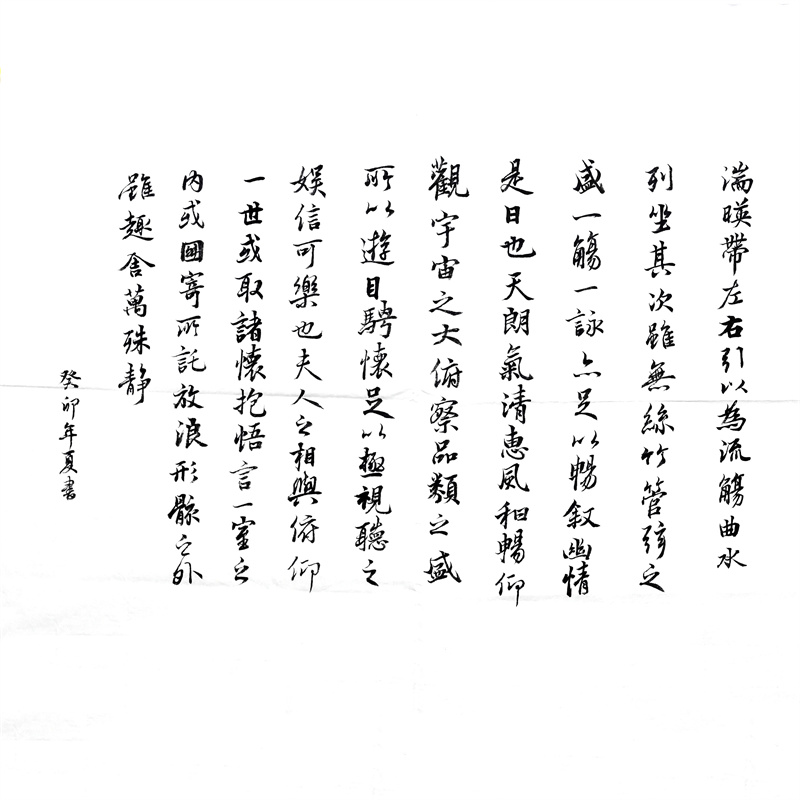 湍暎帶左右引以為流觴曲水
列坐其次雖無絲竹管弦之
盛一觴一詠亦足以暢叙幽情
是日也天朗氣清惠風和暢仰
觀宇宙之大俯察品類之盛
所以遊目騁懷足以極視聽之
娛信可樂也夫人之相與俯仰
一世或取諸懷抱悟言一室之
內或因寄所託放浪形骸之外
雖趣舍萬殊静
癸卯年夏書